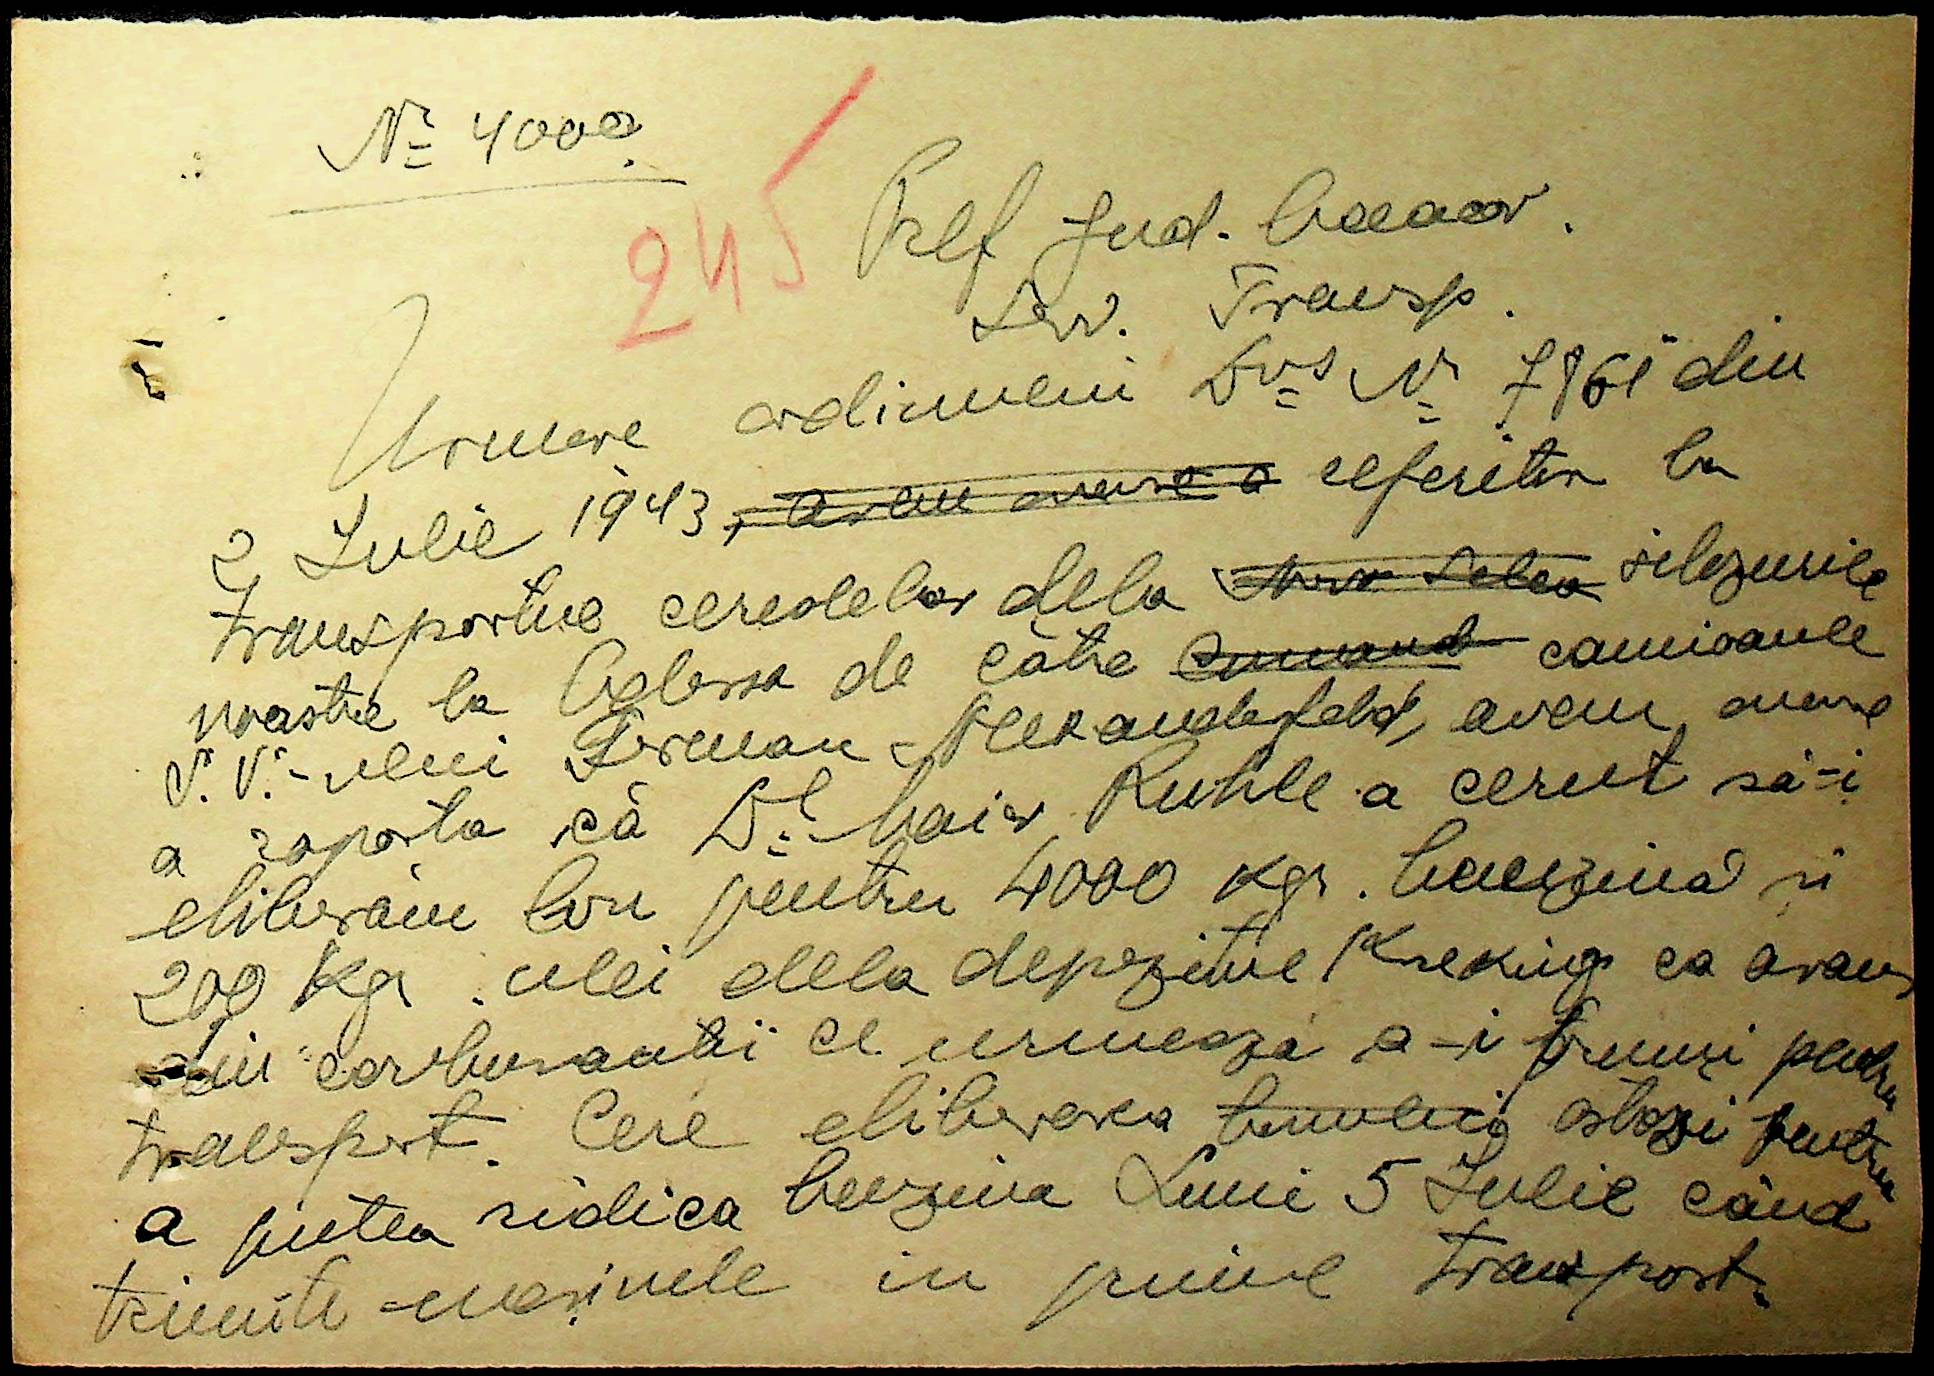 № 4000
245
Pref Jud.
Serv. Transp.
Urmare ordinului Dvs № 7861 din
2 Iulie 1943, avem onoare a referitor la
transportul cerealelor dela silozurile
noastre la Odessa de către camioanele
S.V.-ului German - Alexanderfeld, avem onoare
a raporta că Dl. Maier Ruhle a cerut să-i
eliberăm bon pentru 4000 Kgr. benzină și
200 Kgr. ulei dela depozitul Kreking ca avans
din carburantii ce urmează a-i primi pentru
transport. Cere eliberarea bonului astazi pentru
a putea ridica benzina Luni 5 Iulie când
trimite mașinele in primul transport.